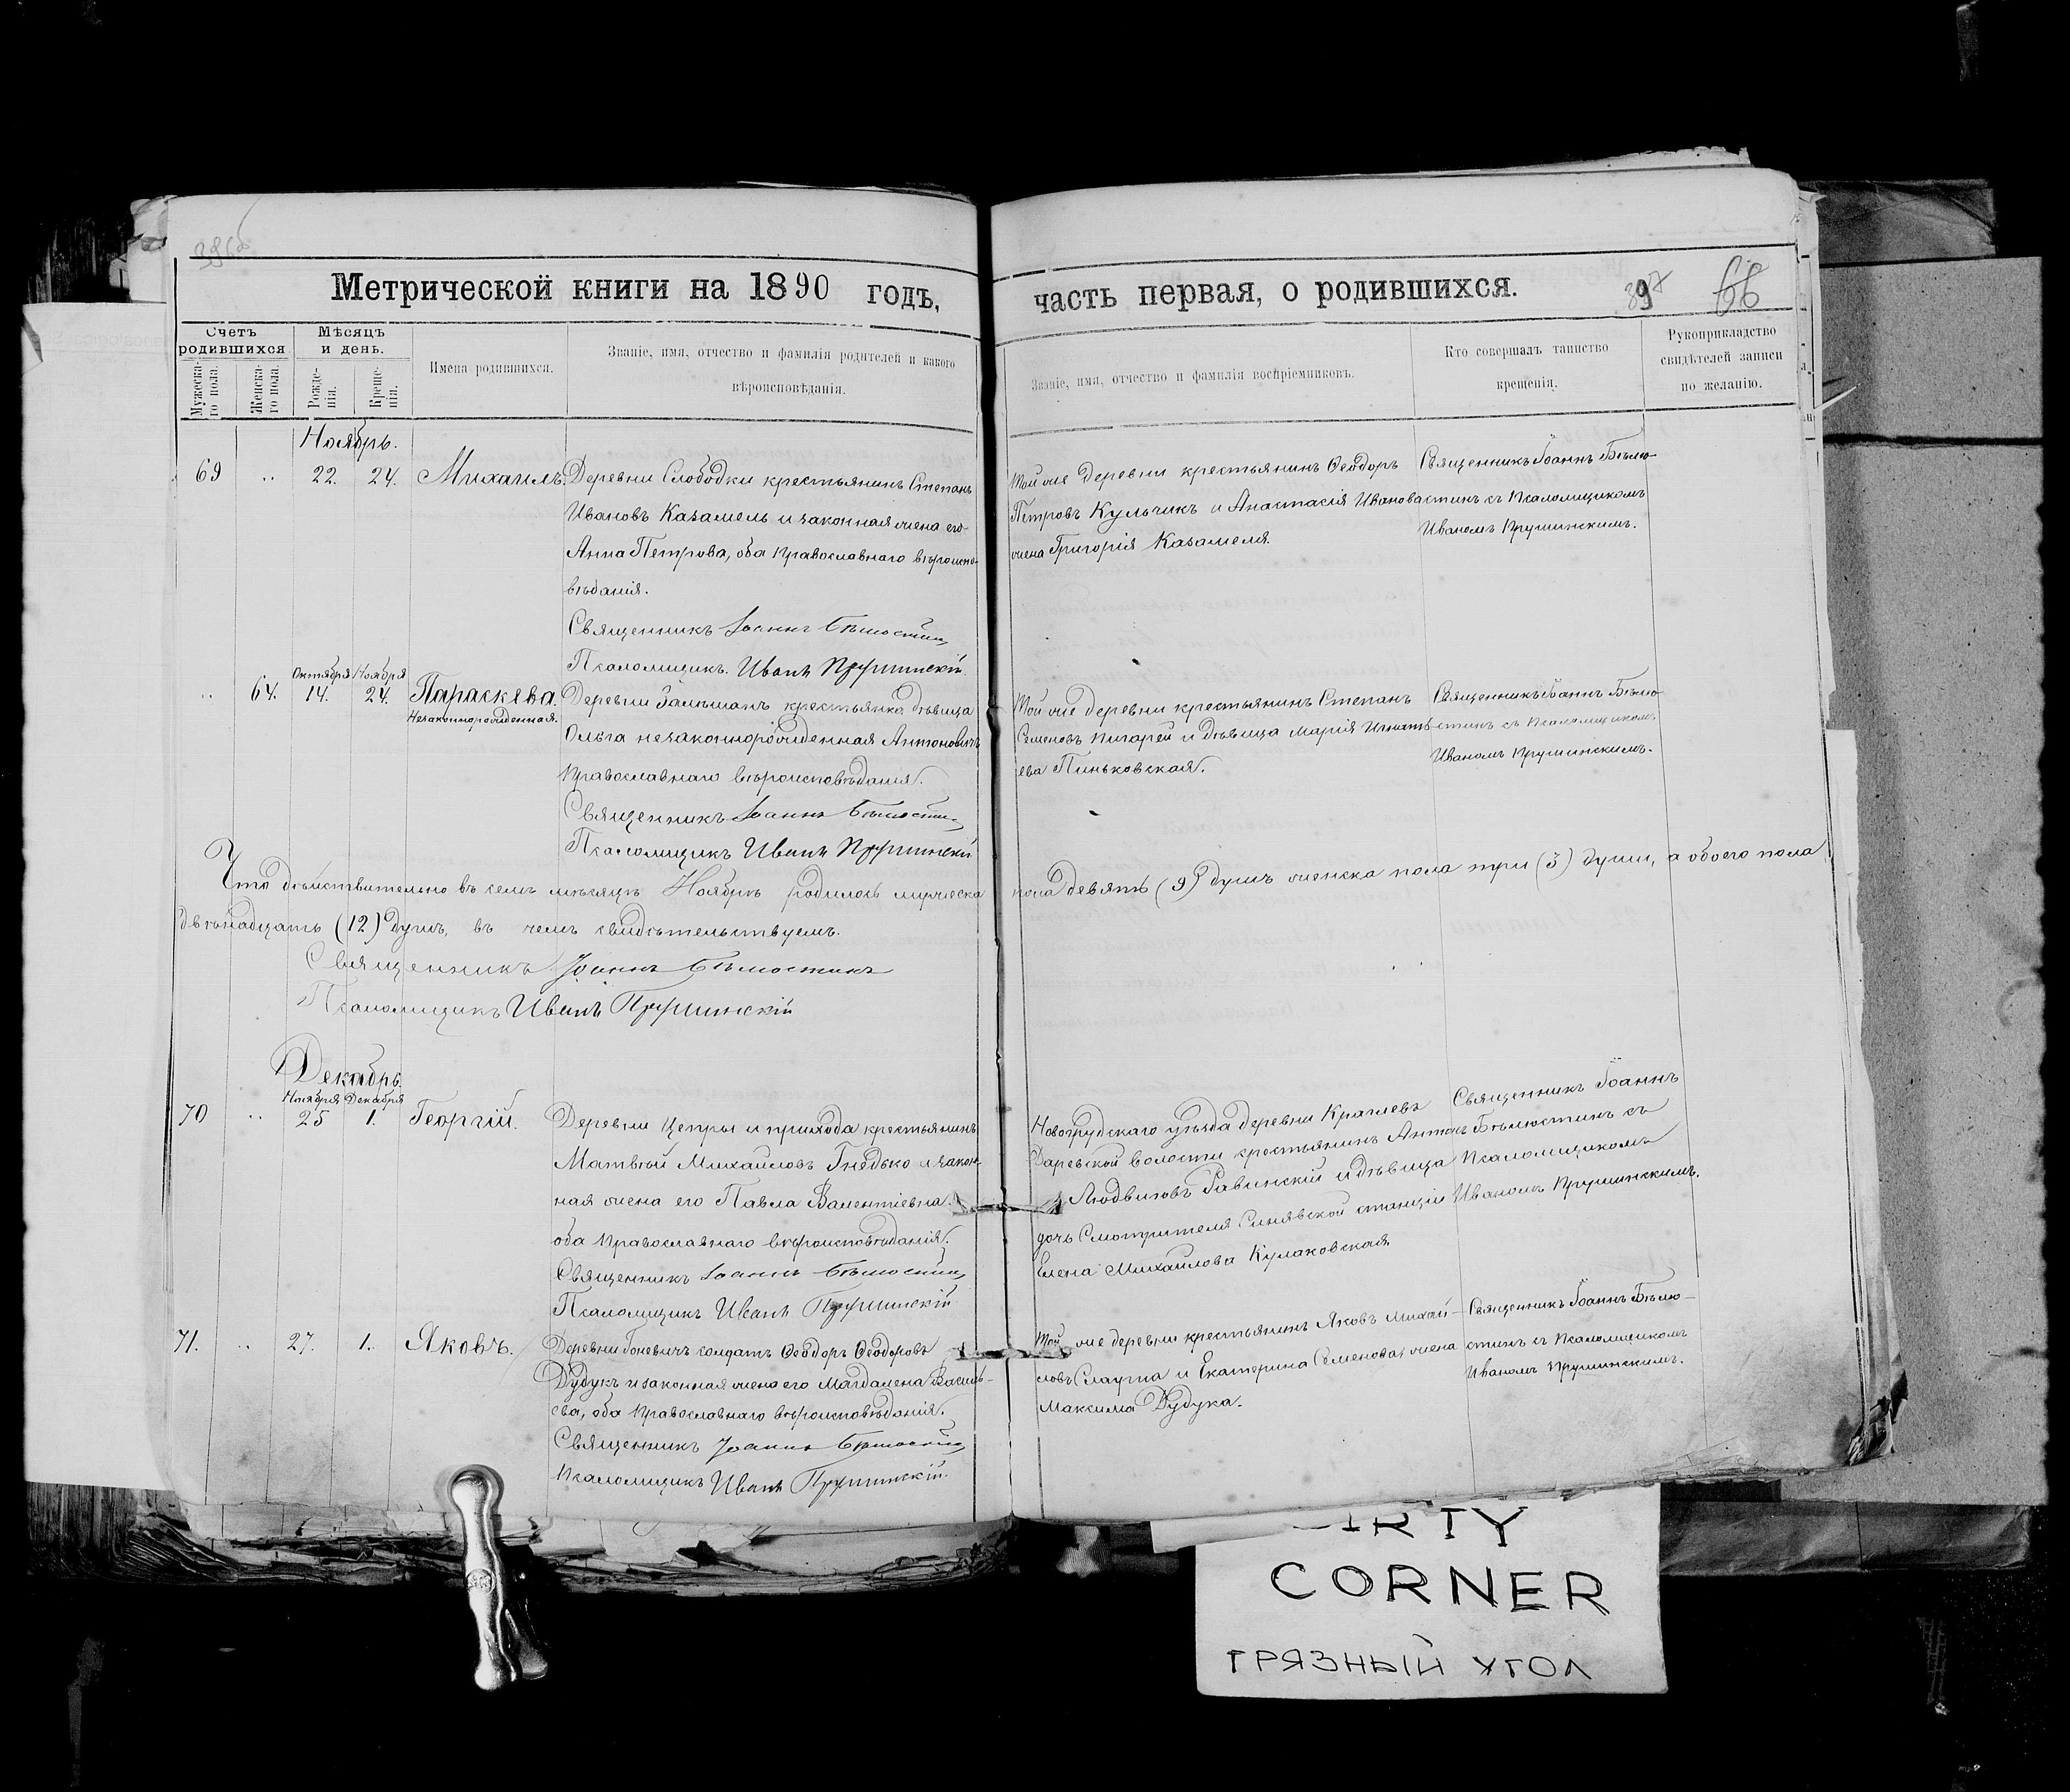 Метрической книги на 1890 годъ,
часть первая, о родившихся.
397
66
Счетъ родившихся
Мѣсяцъ и день.
Мужеска-го пола.
Женска-го пола.
Рожде-нія.
Креще-нія.
Имена родившихся.
Званіе, имя, отчество и фамилія родителей и какого
вѣроисповѣданія.
Званіе, имя, отчество и фамилія воспріемниковъ.
Кто совершалъ таинство
крещенія.
Рукоприкладство
свидѣтелей записи
по желанію.
Ноябрь.
69 .. 22. 24. Михаилъ.
Деревни Слободки крестьянинъ Степанъ
Ивановъ Казамель и законная жена его
Анна Петрова, оба Православнаго вѣроиспо-
вѣданія.
Священникъ Іоаннъ Бѣлюстинъ
Псаломщикъ. Иванъ Прушинскій
Той же деревни крестьянинъ Ѳеодоръ
Петровъ Кульчикъ и Анастасія Иванова
жена Григорія Казамеля.
Священникъ Іоаннъ Бѣлю-
стинъ съ Псаломщикомъ
Иваномъ Прушинскимъ.
Октября Ноября
.. 64. 14. 24. Параскева.
Незаконнорожденная.
Деревни крестьянка дѣвица
Ольга незаконнорожденная Антоновичъ
Православнаго вѣроисповѣданія.
Священникъ Іоаннъ Бѣлюстинъ
Псаломщикъ Иванъ Прушинскій
Той же деревни крестьянинъ Степанъ
Семеновъ Пигарей и дѣвица Марія Игнать-
ева Пиньковская.
Священникъ Іоаннъ Бѣлю-
стинъ съ Псаломщикомъ
Иваномъ Прушинскимъ.
Что дѣйствительно въ семъ мѣсяцѣ Ноябрѣ родилось мужеска пола девять (9) душъ женска пола три (3) души, а обоего пола
двѣнадцать (12) душъ, въ чемъ свидѣтельствуемъ.
Священникъ Іоаннъ Бѣлюстинъ
Псаломщикъ Иванъ Прушинскій
Декабрь.
Ноября Декабря
70 .. 25 1. Георгій.
Деревни Цепры и прихода крестьянинъ
Матвѣй Михайловъ Гнедько и закон-
ная жена его Павла Валентіевна.
оба Православнаго вѣроисповѣданія.
Священникъ Іоаннъ Бѣлюстинъ
Псаломщикъ Иванъ Прушинскій
Новогрудскаго уѣзда деревни
Даревской волости крестьянинъ Антонъ
Людвиговъ Савинскій и дѣвица
дочь Смотрителя Синявской станціи
Елена Михайлова Кулаковская
Священникъ Іоаннъ
Бѣлюстинъ съ
Псаломщикомъ
Иваномъ Прушинскимъ.
71. .. 27. 1. Яковъ.
Деревни солдатъ Ѳеодоръ Ѳеодоровъ
Дудукъ и законная жена его Магдалена Василь-
ева, оба Православнаго вѣроисповѣданія.
Священникъ Іоаннъ Бѣлюстинъ
Псаломщикъ Иванъ Прушинскій.
Той же деревни крестьянинъ Яковъ Михай-
ловъ Слаута и Екатерина Семенова, жена
Максима Дудука.
Священникъ Іоаннъ Бѣлю-
стинъ съ Псаломщикомъ
Иваномъ Прушинскимъ.
CORNER
ГРЯЗНЫЙ УГОЛ